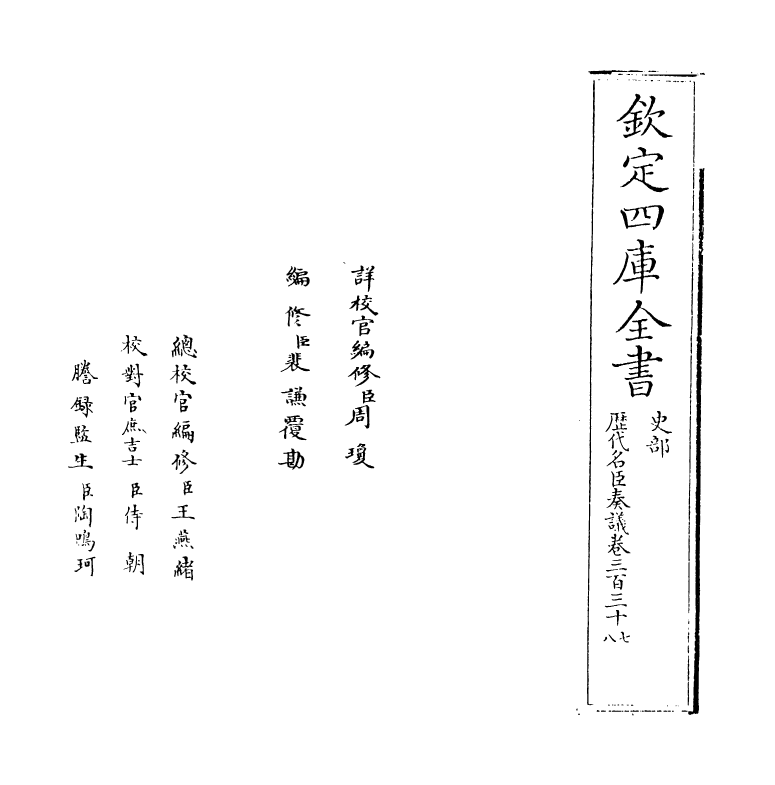 欽定四庫全書
史部
歷代名臣奏議卷三百三十七八
詳校官編修臣周瓊
編修臣裴謙覆勘
總校官編修臣王燕緒
校對官庶吉士臣侍朝
謄錄監生臣陶鳴珂